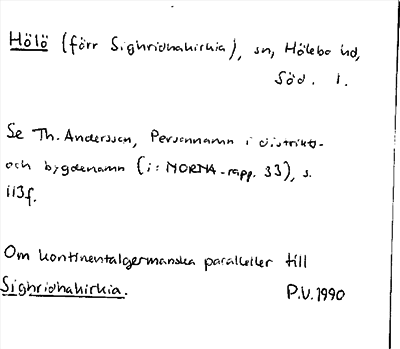 Hölö (förr Sighridhakirkia), sn, Hölebo hd,
Söd. l.
Se Th. Andersson, Personnamn i distrikts-
och bygdenamn (i: NORNA-rapp. 33), s.
113f.
Om kontinentalgermanska paralleller till
Sighridhakirkia.
P.V. 1990